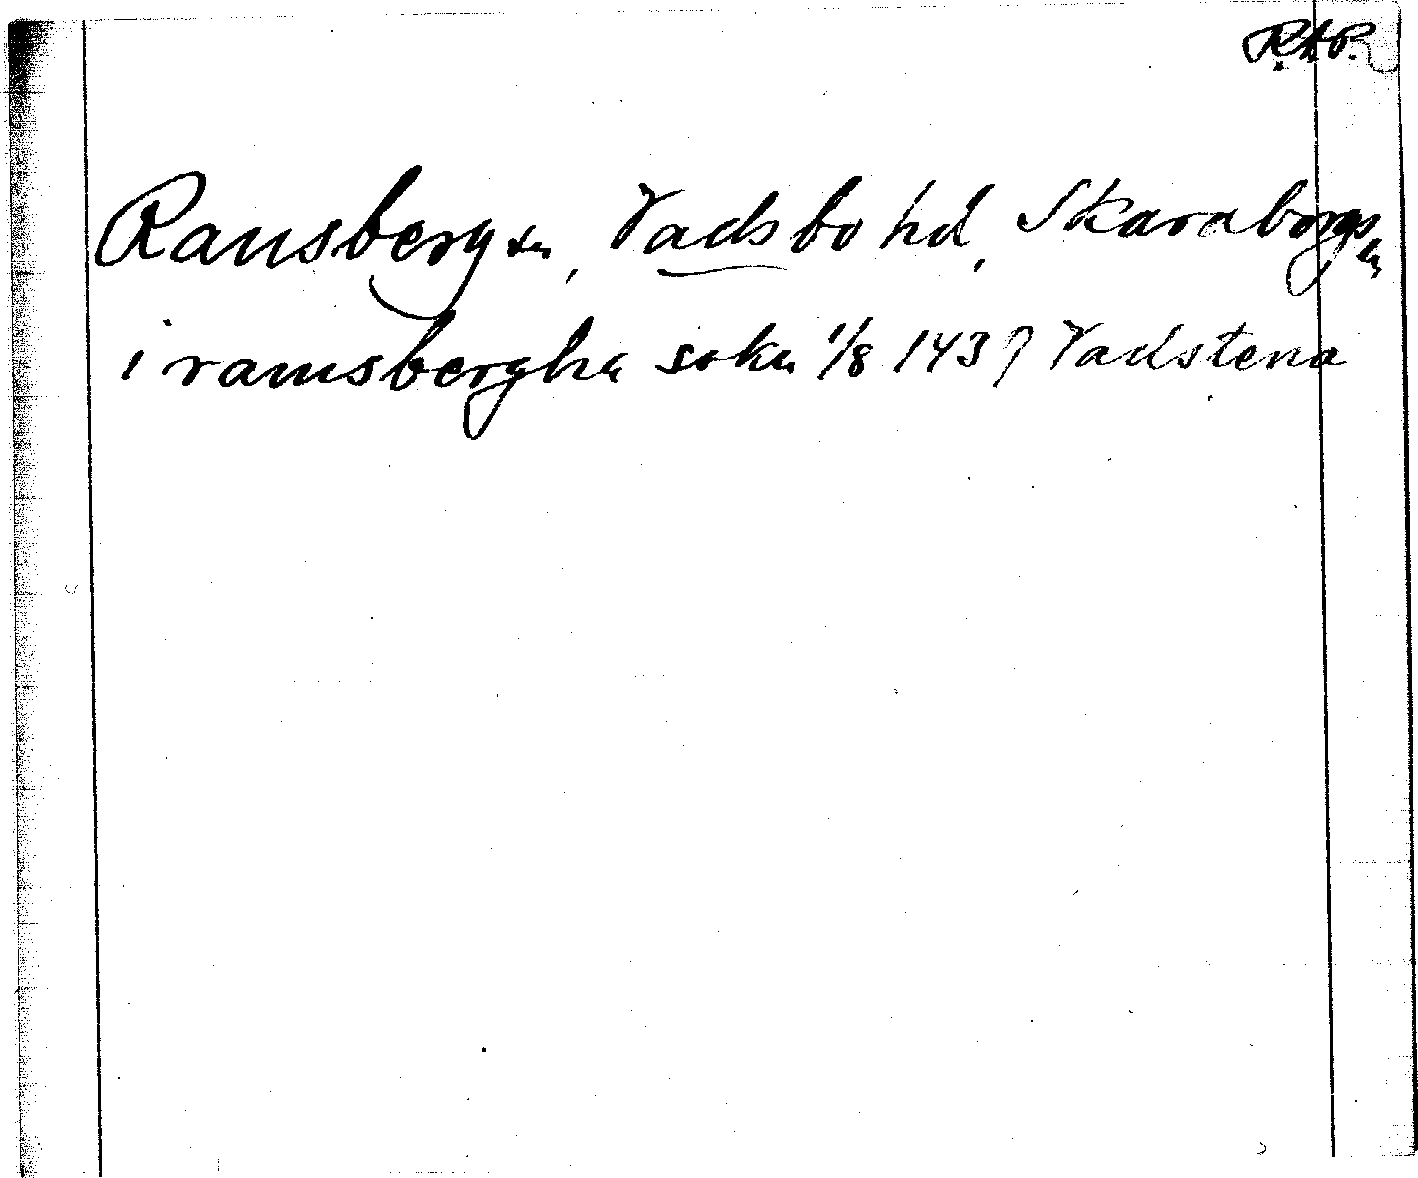 R.A.P.
Ransberg sn, Vadsbo hd, Skaraborgs ln
i ramsbergha sokn 1/8 1437 Vadstena